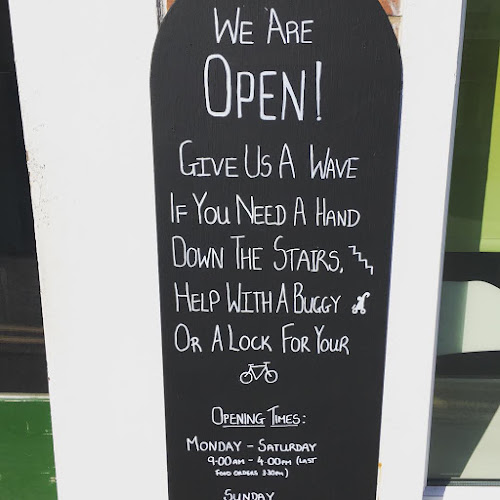 We Are
Open!
Give Us A Wave
If You Need A Hand
Down The Stairs,
Help With A Buggy
Or A Lock For Your
Opening Times:
Monday - Saturday
9:00am - 4:00pm (Last
Food Orders 3:30pm)
Sunday